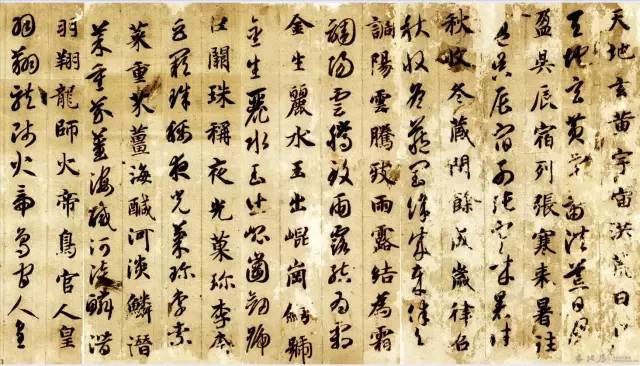 天地玄黄宇宙洪荒日月
天地玄黄宇宙洪荒日月
盈昃辰宿列張寒来暑往
盈昃辰宿列張寒来暑往
秋收冬藏閏餘成歲律召
秋收冬藏閏餘成歲律召
調陽雲騰致雨露結為霜
調陽雲騰致雨露結為霜
金生麗水玉出崐崗劍號
金生麗水玉出崐崗劍號
巨闕珠稱夜光菓珍李柰
巨闕珠稱夜光菓珍李柰
菜重芥薑海醎河淡鱗潛
菜重芥薑海醎河淡鱗潛
羽翔龍師火帝鳥官人皇
羽翔龍師火帝鳥官人皇